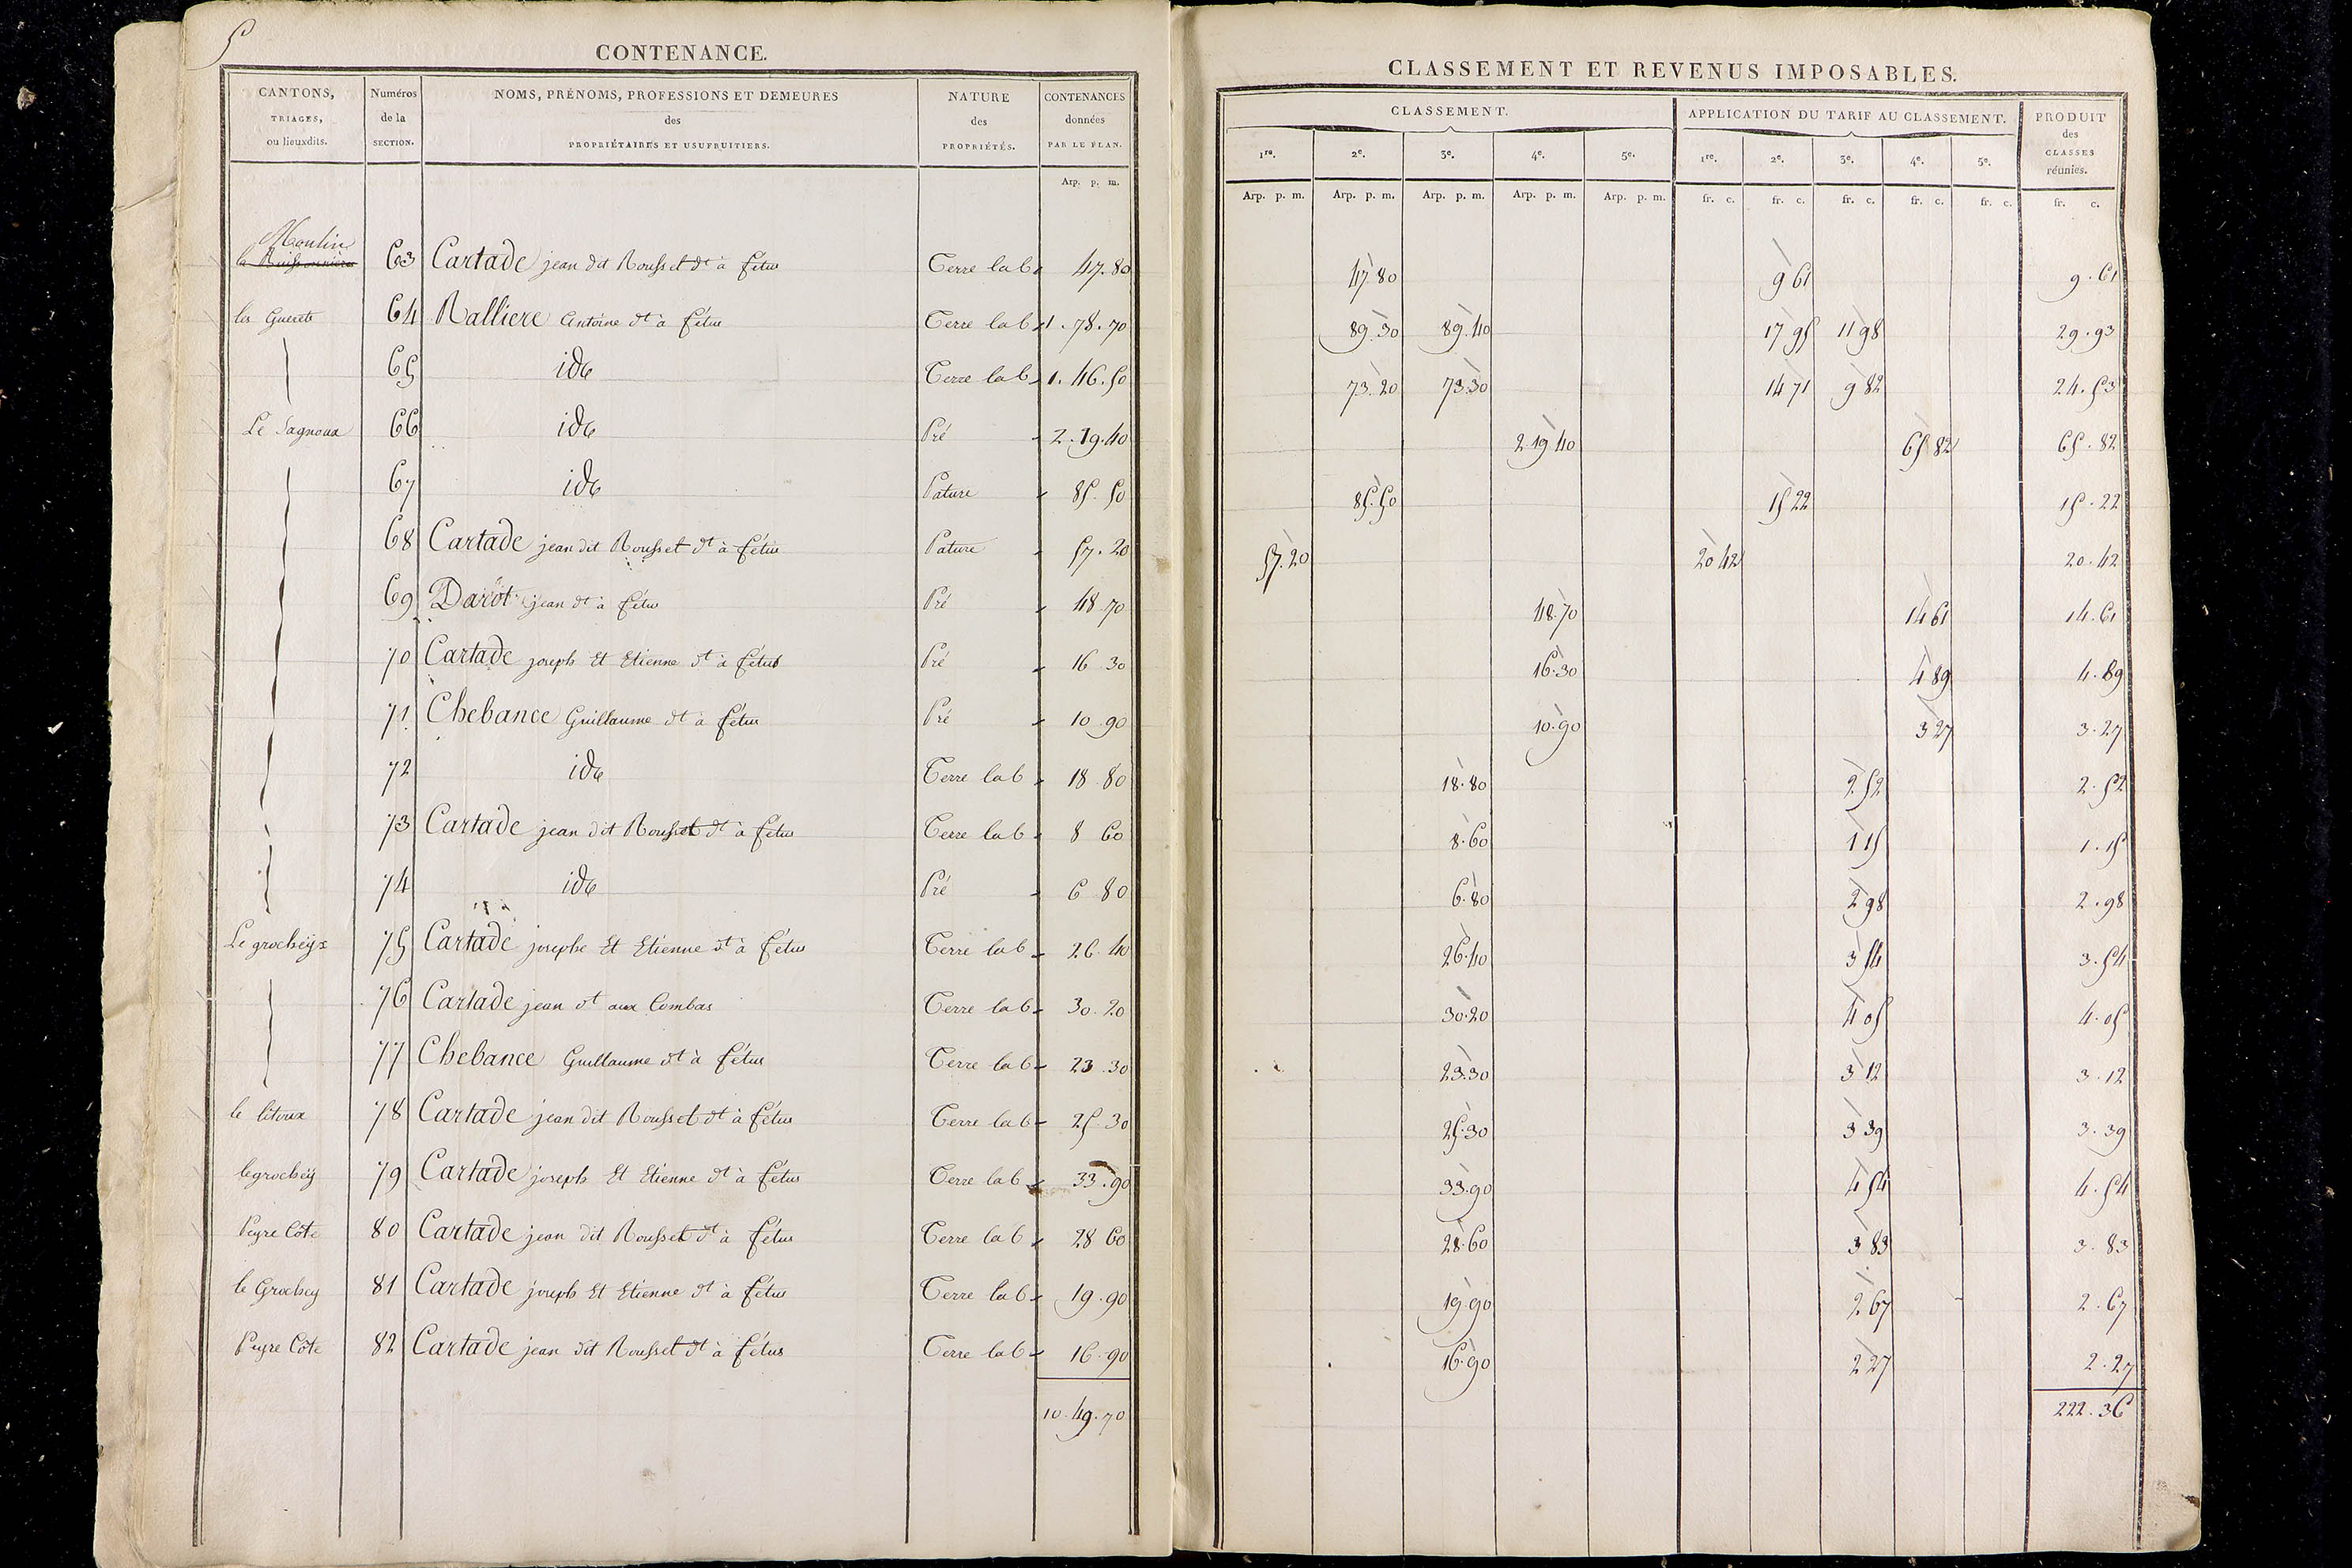 5
CONTENANCE.
CANTONS, TRIAGES, ou lieuxdits. | Numéros de la SECTION. | NOMS, PRÉNOMS, PROFESSIONS ET DEMEURES des PROPRIÉTAIRES ET USUFRUITIERS. | NATURE des PROPRIÉTÉS. | CONTENANCES données PAR LE PLAN.
Arp. p. m.
CLASSEMENT ET REVENUS IMPOSABLES.
CLASSEMENT. | APPLICATION DU TARIF AU CLASSEMENT. | PRODUIT des CLASSES réunies.
1re. | 2e. | 3e. | 4e. | 5e. | 1re. | 2e. | 3e. | 4e. | 5e.
Arp. p. m. | Arp. p. m. | Arp. p. m. | Arp. p. m. | Arp. p. m. | fr. c. | fr. c. | fr. c. | fr. c. | fr. c. | fr. c.
Moulin
la Buissonniere 63 Cartade jean dit Rousset dt à fétus Terre lab 47.80 | 47.80 | 9 61 | 9.61
les Guerets 64 Ralliere Antoine dt à fétus Terre lab 1.78.70 | 89.30 | 89.40 | 17 95 | 11 98 | 29.93
65 ide Terre lab 1.46.50 | 73.20 | 73.30 | 14 71 | 9 82 | 24.53
Le Sagnoux 66 ide Pré 2.19.40 | 2.19.40 | 65 82 | 65.82
67 ide Pature 85.50 | 85.50 | 15 22 | 15.22
68 Cartade jean dit Rousset dt à fétus Pature 57.20 | 57.20 | 20 42 | 20.42
69 Darot jean dt à fétus Pré 48.70 | 48.70 | 14 61 | 14.61
70 Cartade joseph Et Etienne dt à fétus Pré 16 30 | 16.30 | 4 89 | 4.89
71 Chebance Guillaume dt à fétus Pré 10 90 | 10.90 | 3 27 | 3.27
72 ide Terre lab 18 80 | 18.80 | 2 52 | 2.52
73 Cartade jean dit Rousset dt à fétus Terre lab 8 60 | 8.60 | 1 15 | 1.15
74 ide Pré 6 80 | 6.80 | 2 98 | 2.98
Le grocheix 75 Cartade josephe Et Etienne dt à fétus Terre lab 26.40 | 26.40 | 3 54 | 3.54
76 Cartade jean dt aux Combas Terre lab 30.20 | 30.20 | 4 05 | 4.05
77 Chebance Guillaume dt à fétus Terre lab 23.30 | 23.30 | 3 12 | 3.12
le litoux 78 Cartade jean dit Rousset dt à fétus Terre lab 25.30 | 25.30 | 3 39 | 3.39
le grochey 79 Cartade joseph Et Etienne dt à fétus Terre lab 33.90 | 33.90 | 4 54 | 4.54
Peyre Côte 80 Cartade jean dit Rousset dt à fétus Terre lab 28 60 | 28.60 | 3 83 | 3.83
le Grochey 81 Cartade joseph Et Etienne dt à fétus Terre lab 19.90 | 19.90 | 2 67 | 2.67
Peyre Côte 82 Cartade jean dit Rousset dt à fétus Terre lab 16.90 | 16.90 | 2 27 | 2.27
10.49.70 | 222.36